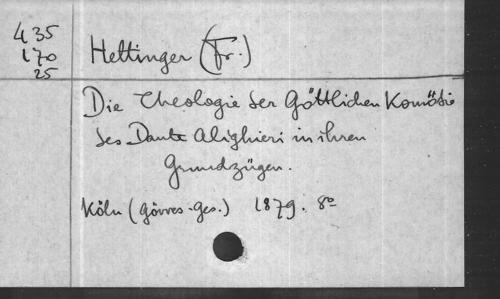 435
170
25
Hettinger (Fr.)
Die Theologie der Göttlichen Komödie
des Dante Alighieri in ihren
Grundzügen.
Köln (Görres-Ges.) 1879. 8°